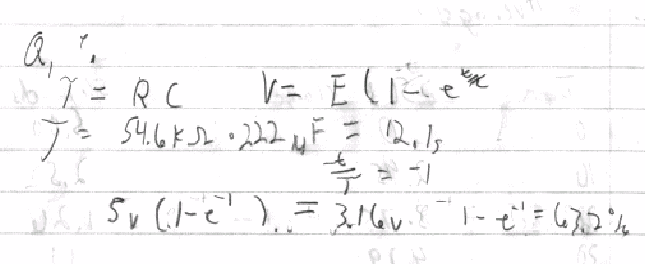 Q1
τ = RC V = E (1 - e
τ = 54.6kΩ · 222μF = 12.1s
t/τ = -1
5v (1-e^-1) = 3.16v 1 - e^-1 = 63.2%